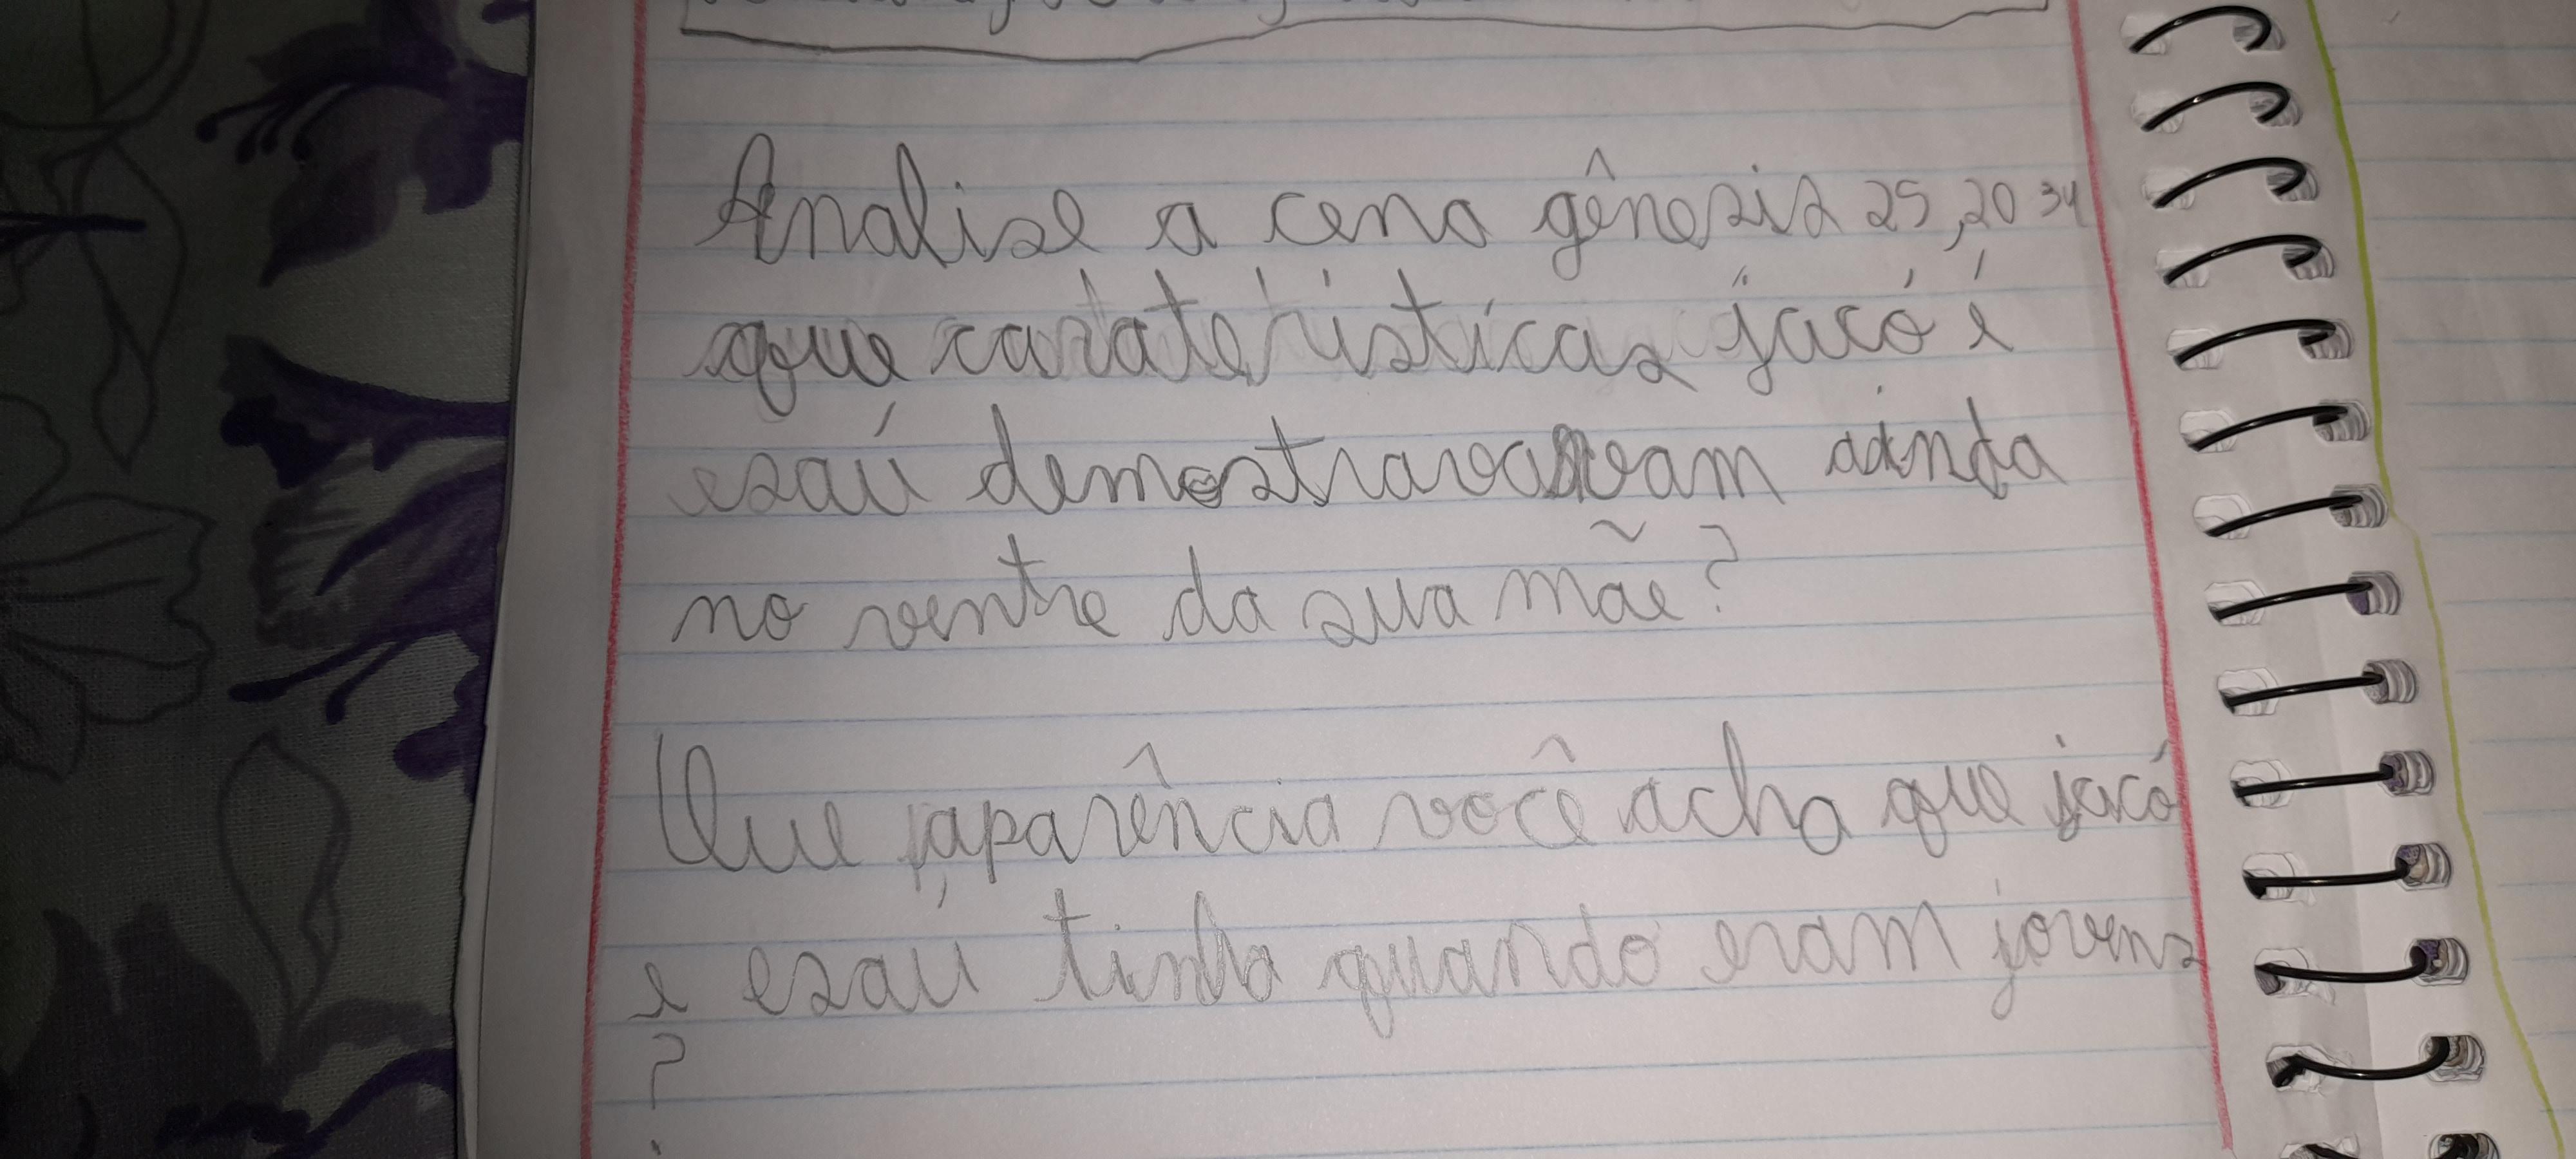 Analise a cena gênesis 25,20 34
que carateristicas jacó é
esaú demostravam ainda
no ventre da sua mãe?
Que aparência você acha que jacó
e esaú tinha quando eram jovens
?